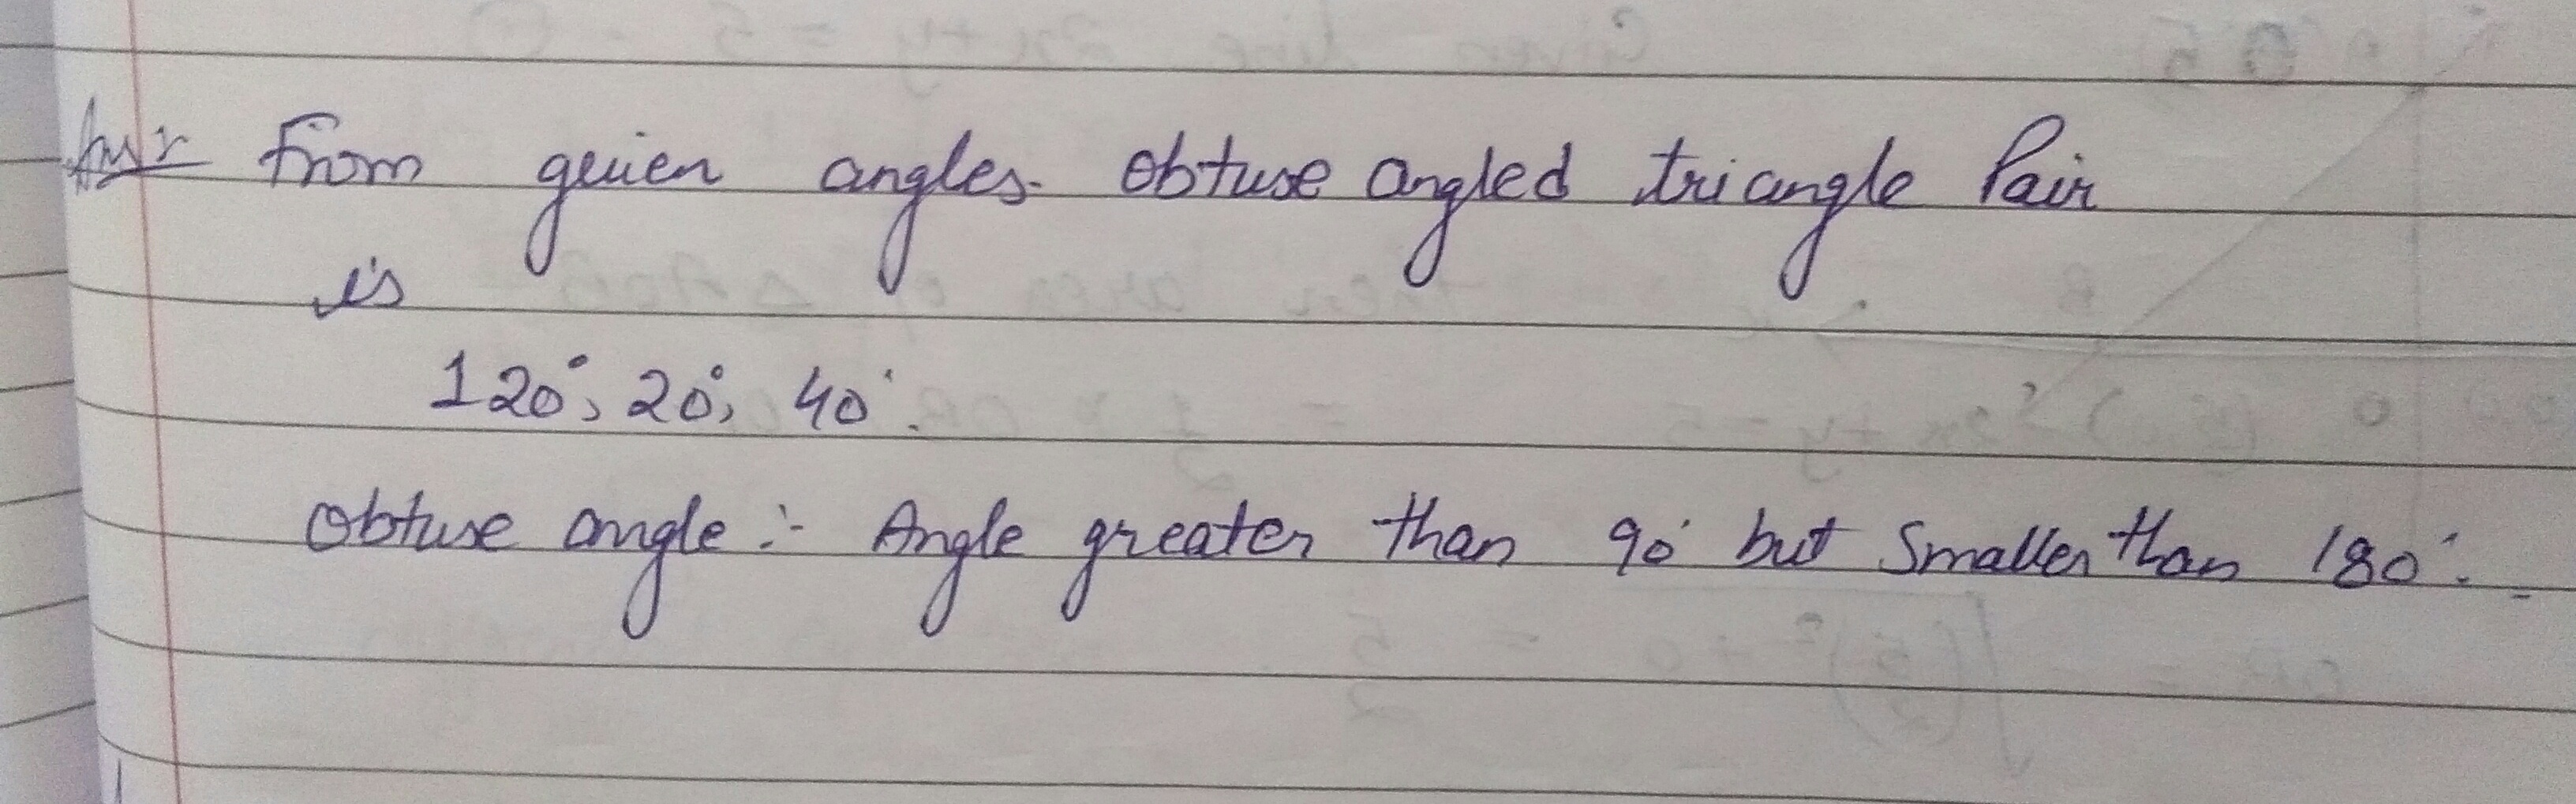 Ansr From geuien angles. Obtuse angled triangle Pair
is
120°, 20°, 40°.
Obtuse angle :- Angle greater than 90° but Smaller than 180°.